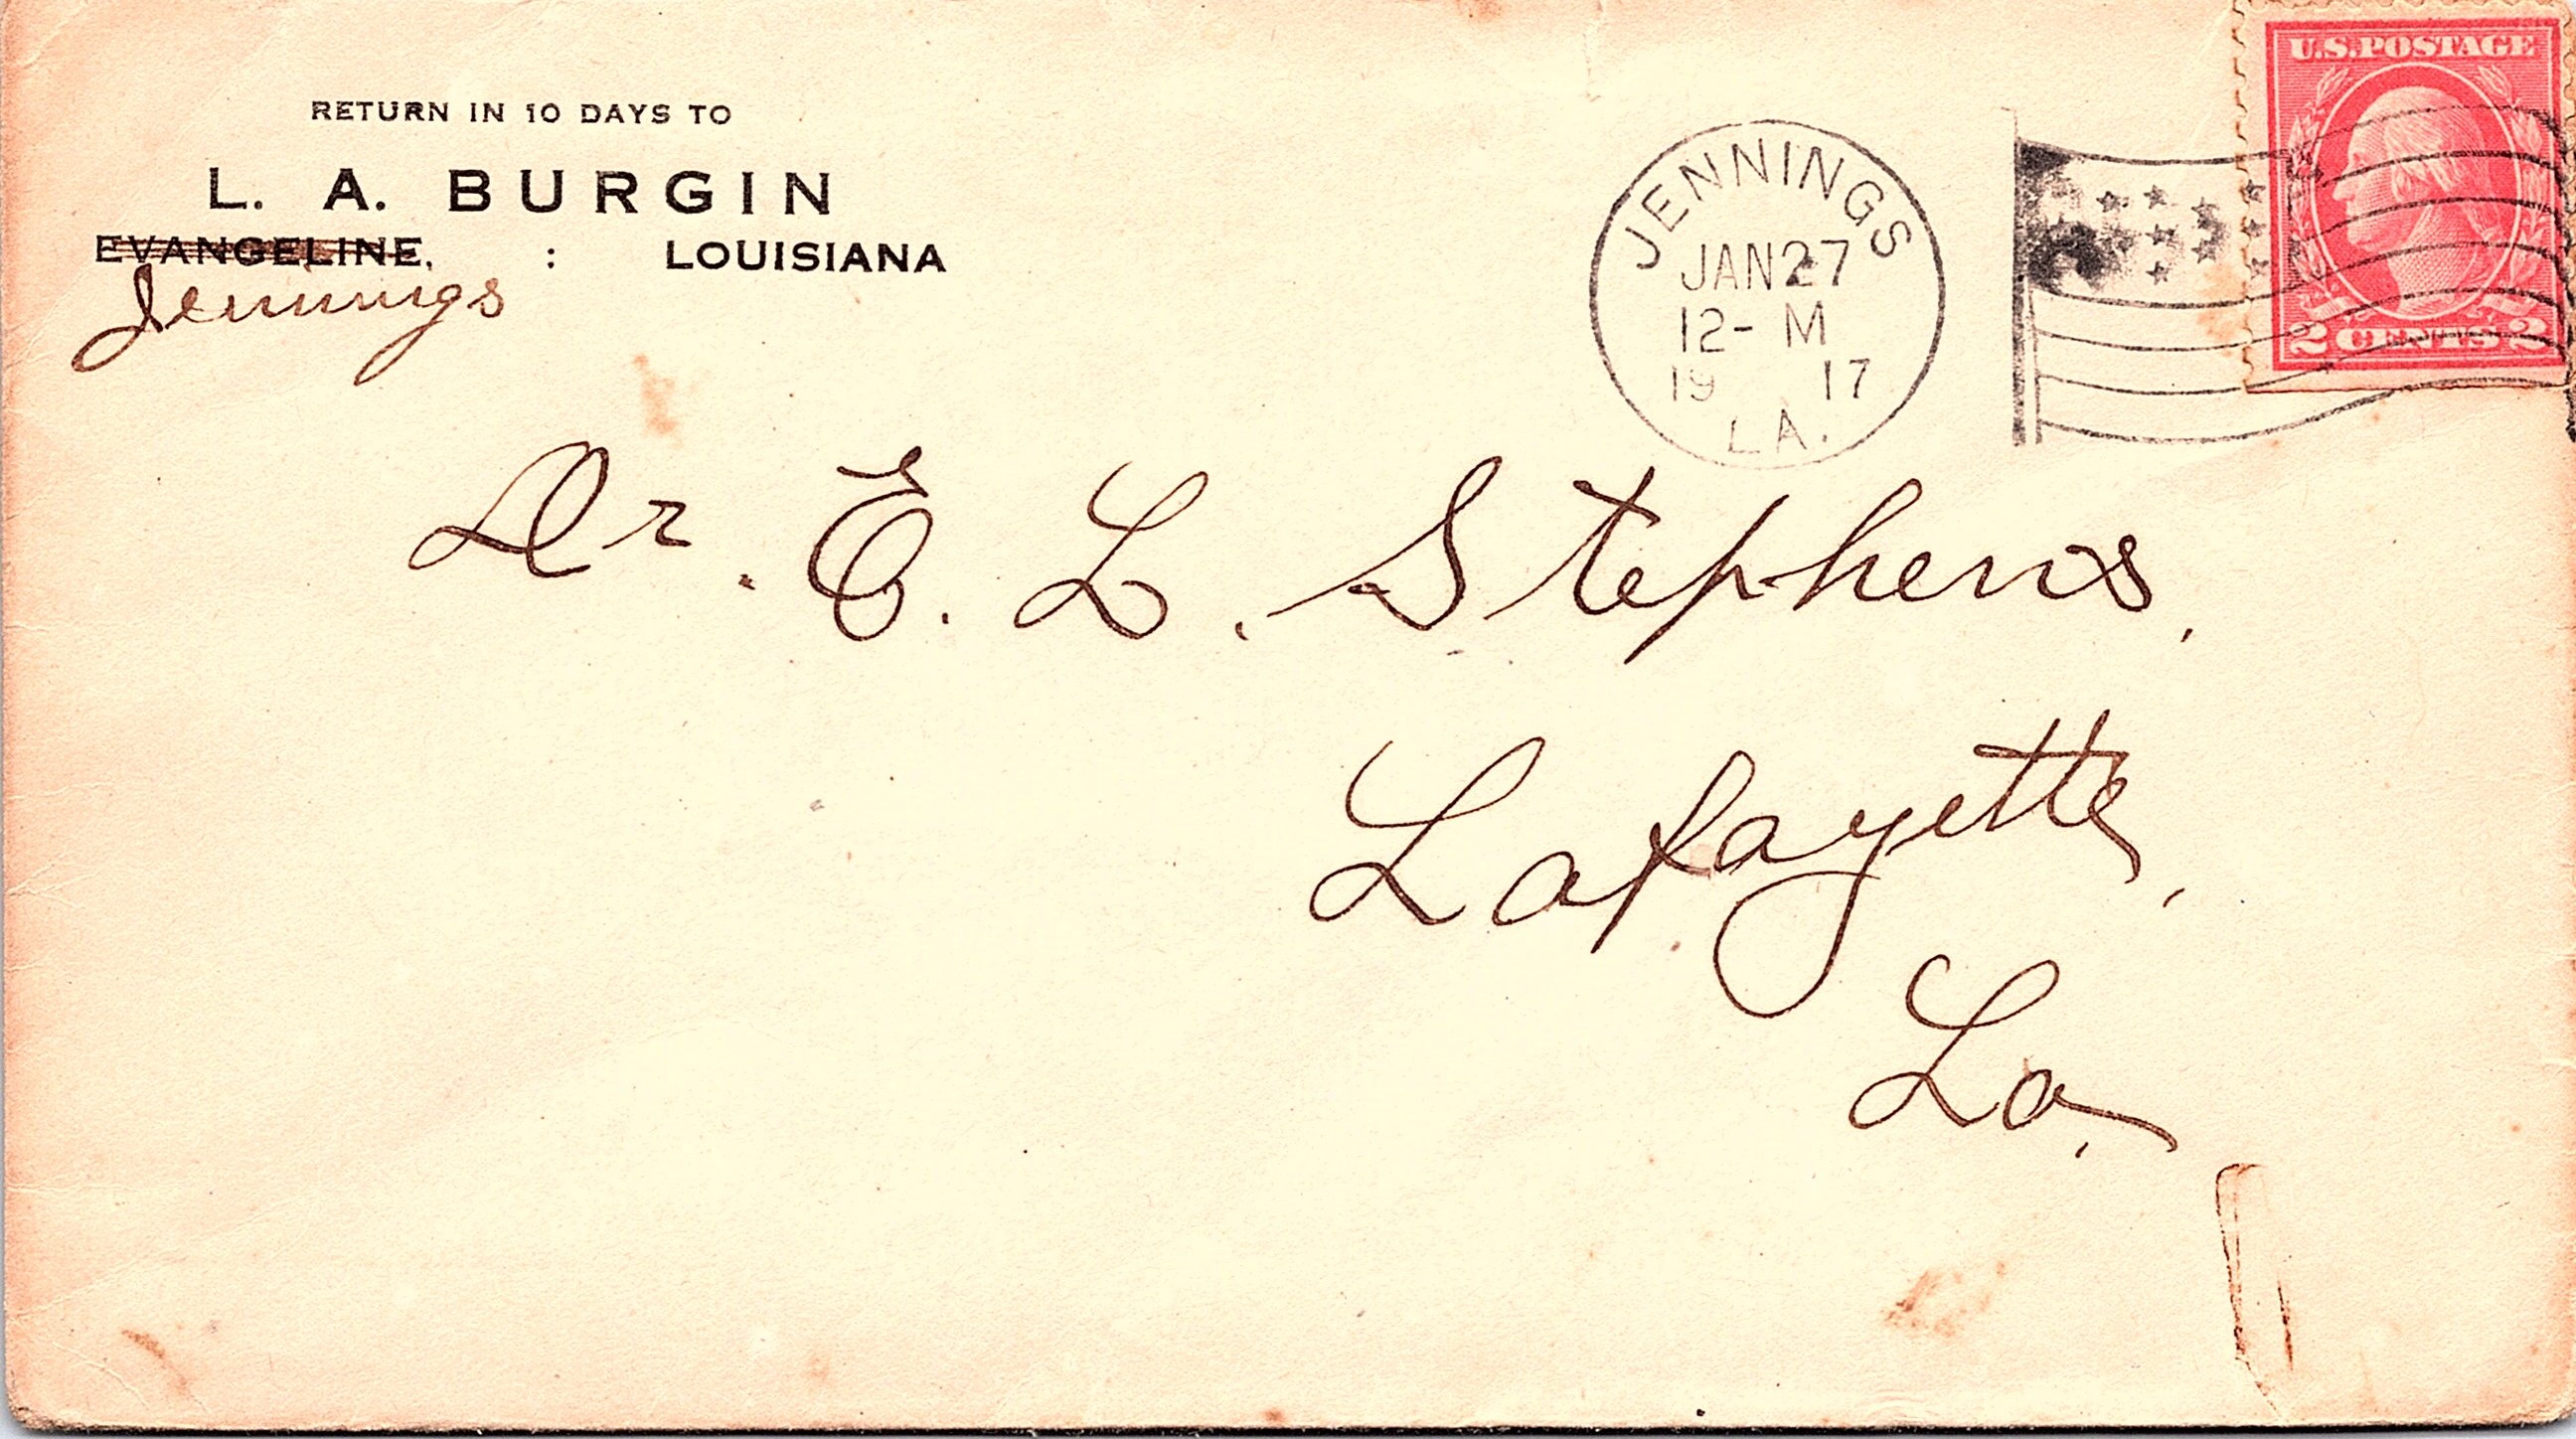 RETURN IN 10 DAYS TO
L. A. BURGIN
EVANGELINE, : LOUISIANA
Jennings
JENNINGS
JAN 27
12- M
19 17
LA.
U.S. POSTAGE
2 CENTS 2
Dr. E. L. Stephens,
Lafayette,
La.